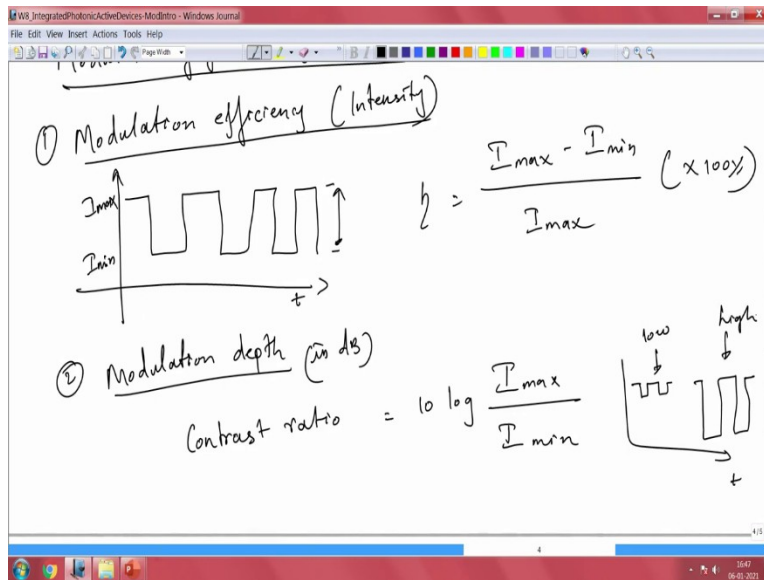 W8_IntegratedPhotonicActiveDevices-ModIntro - Windows Journal
File Edit View Insert Actions Tools Help
Page Width
① Modulation efficiency (Intensity)
Imax
Imin
t
η = Imax - Imin / Imax (x100%)
② Modulation depth (in dB)
Contrast ratio = 10 log Imax / Imin
low high
t
4/5
4
16:47
06-01-2021